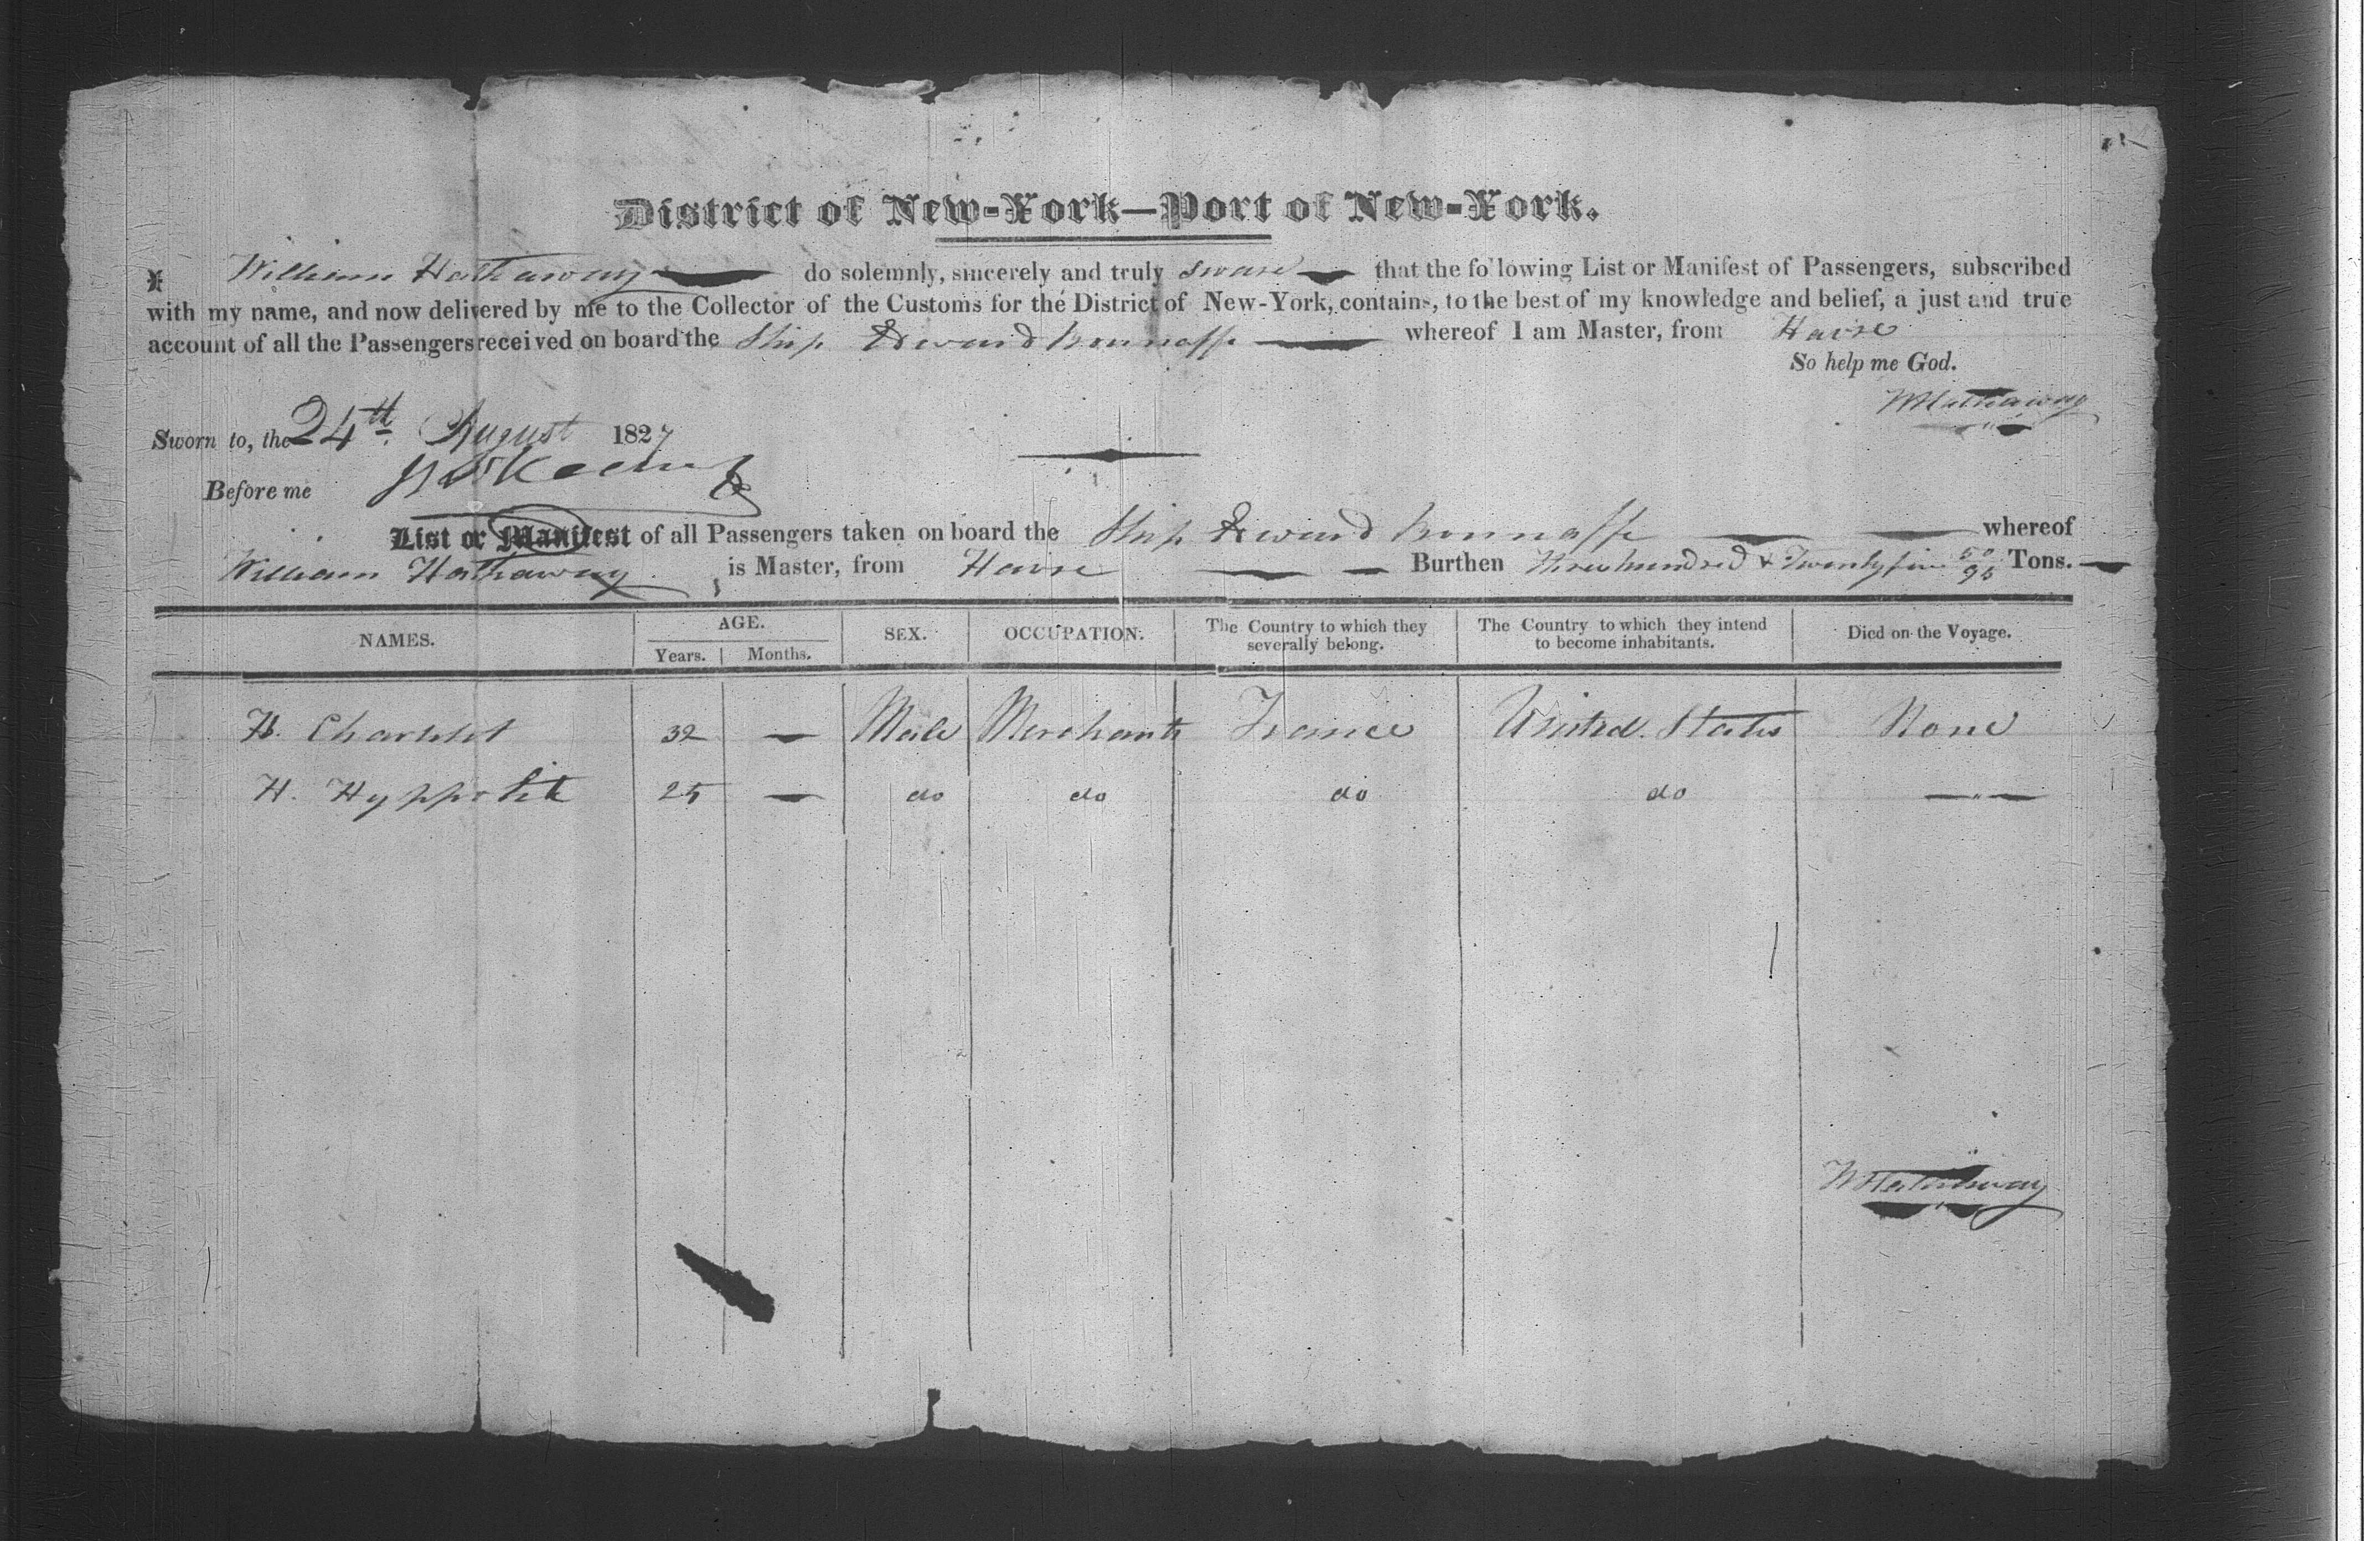 District of New-York—Port of New-York.
I William Hathaway do solemnly, sincerely and truly swear that the following List or Manifest of Passengers, subscribed
with my name, and now delivered by me to the Collector of the Customs for the District of New-York, contains, to the best of my knowledge and belief, a just and true
account of all the Passengers received on board the Ship Edward Bonnaffe whereof I am Master, from Havre
So help me God.
WHathaway
Sworn to, the 24th August 1827
Before me
List or Manifest of all Passengers taken on board the Ship Edward Bonnaffe whereof
William Hathaway is Master, from Havre Burthen Three hundred & Twenty five 50/95 Tons.
NAMES. AGE. SEX. OCCUPATION. The Country to which they severally belong. The Country to which they intend to become inhabitants. Died on the Voyage.
Years. Months.
H. 32 — Male Merchants France United States None
H. Hyppolite 25 — do do do do —"—
WHathaway